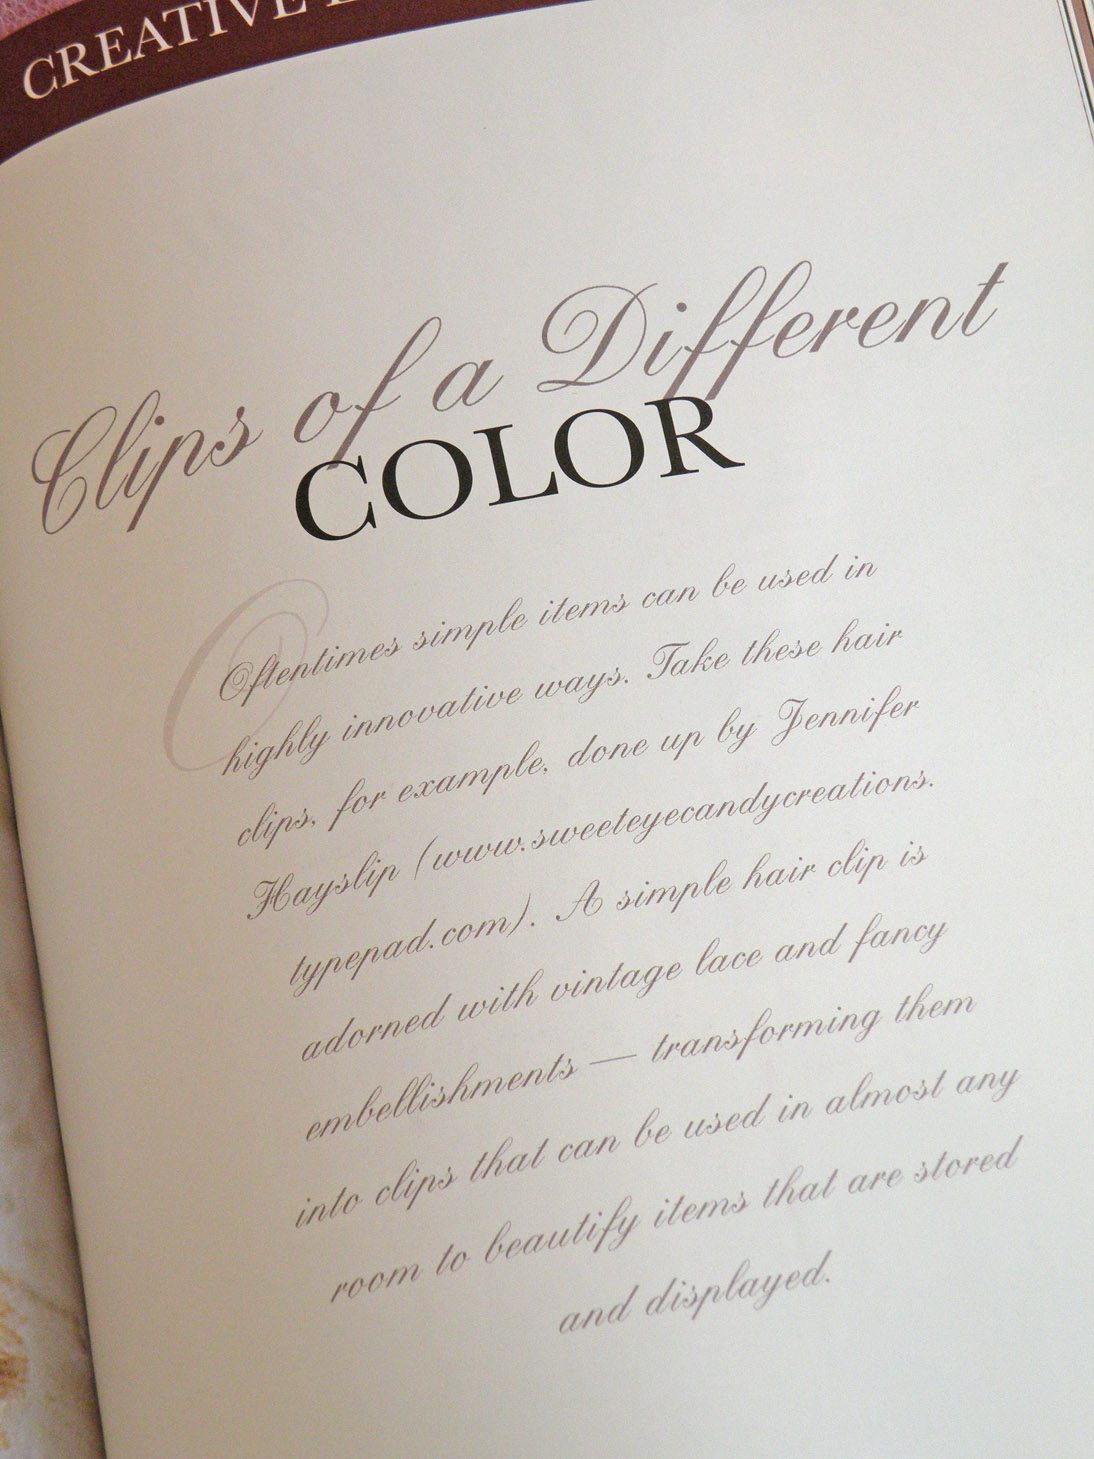 CREATIVE
Clips of a Different
COLOR
Oftentimes simple items can be used in
highly innovative ways. Take these hair
clips, for example, done up by Jennifer
Hayslip (www.sweeteyecandycreations.
typepad.com). A simple hair clip is
adorned with vintage lace and fancy
embellishments — transforming them
into clips that can be used in almost any
room to beautify items that are stored
and displayed.